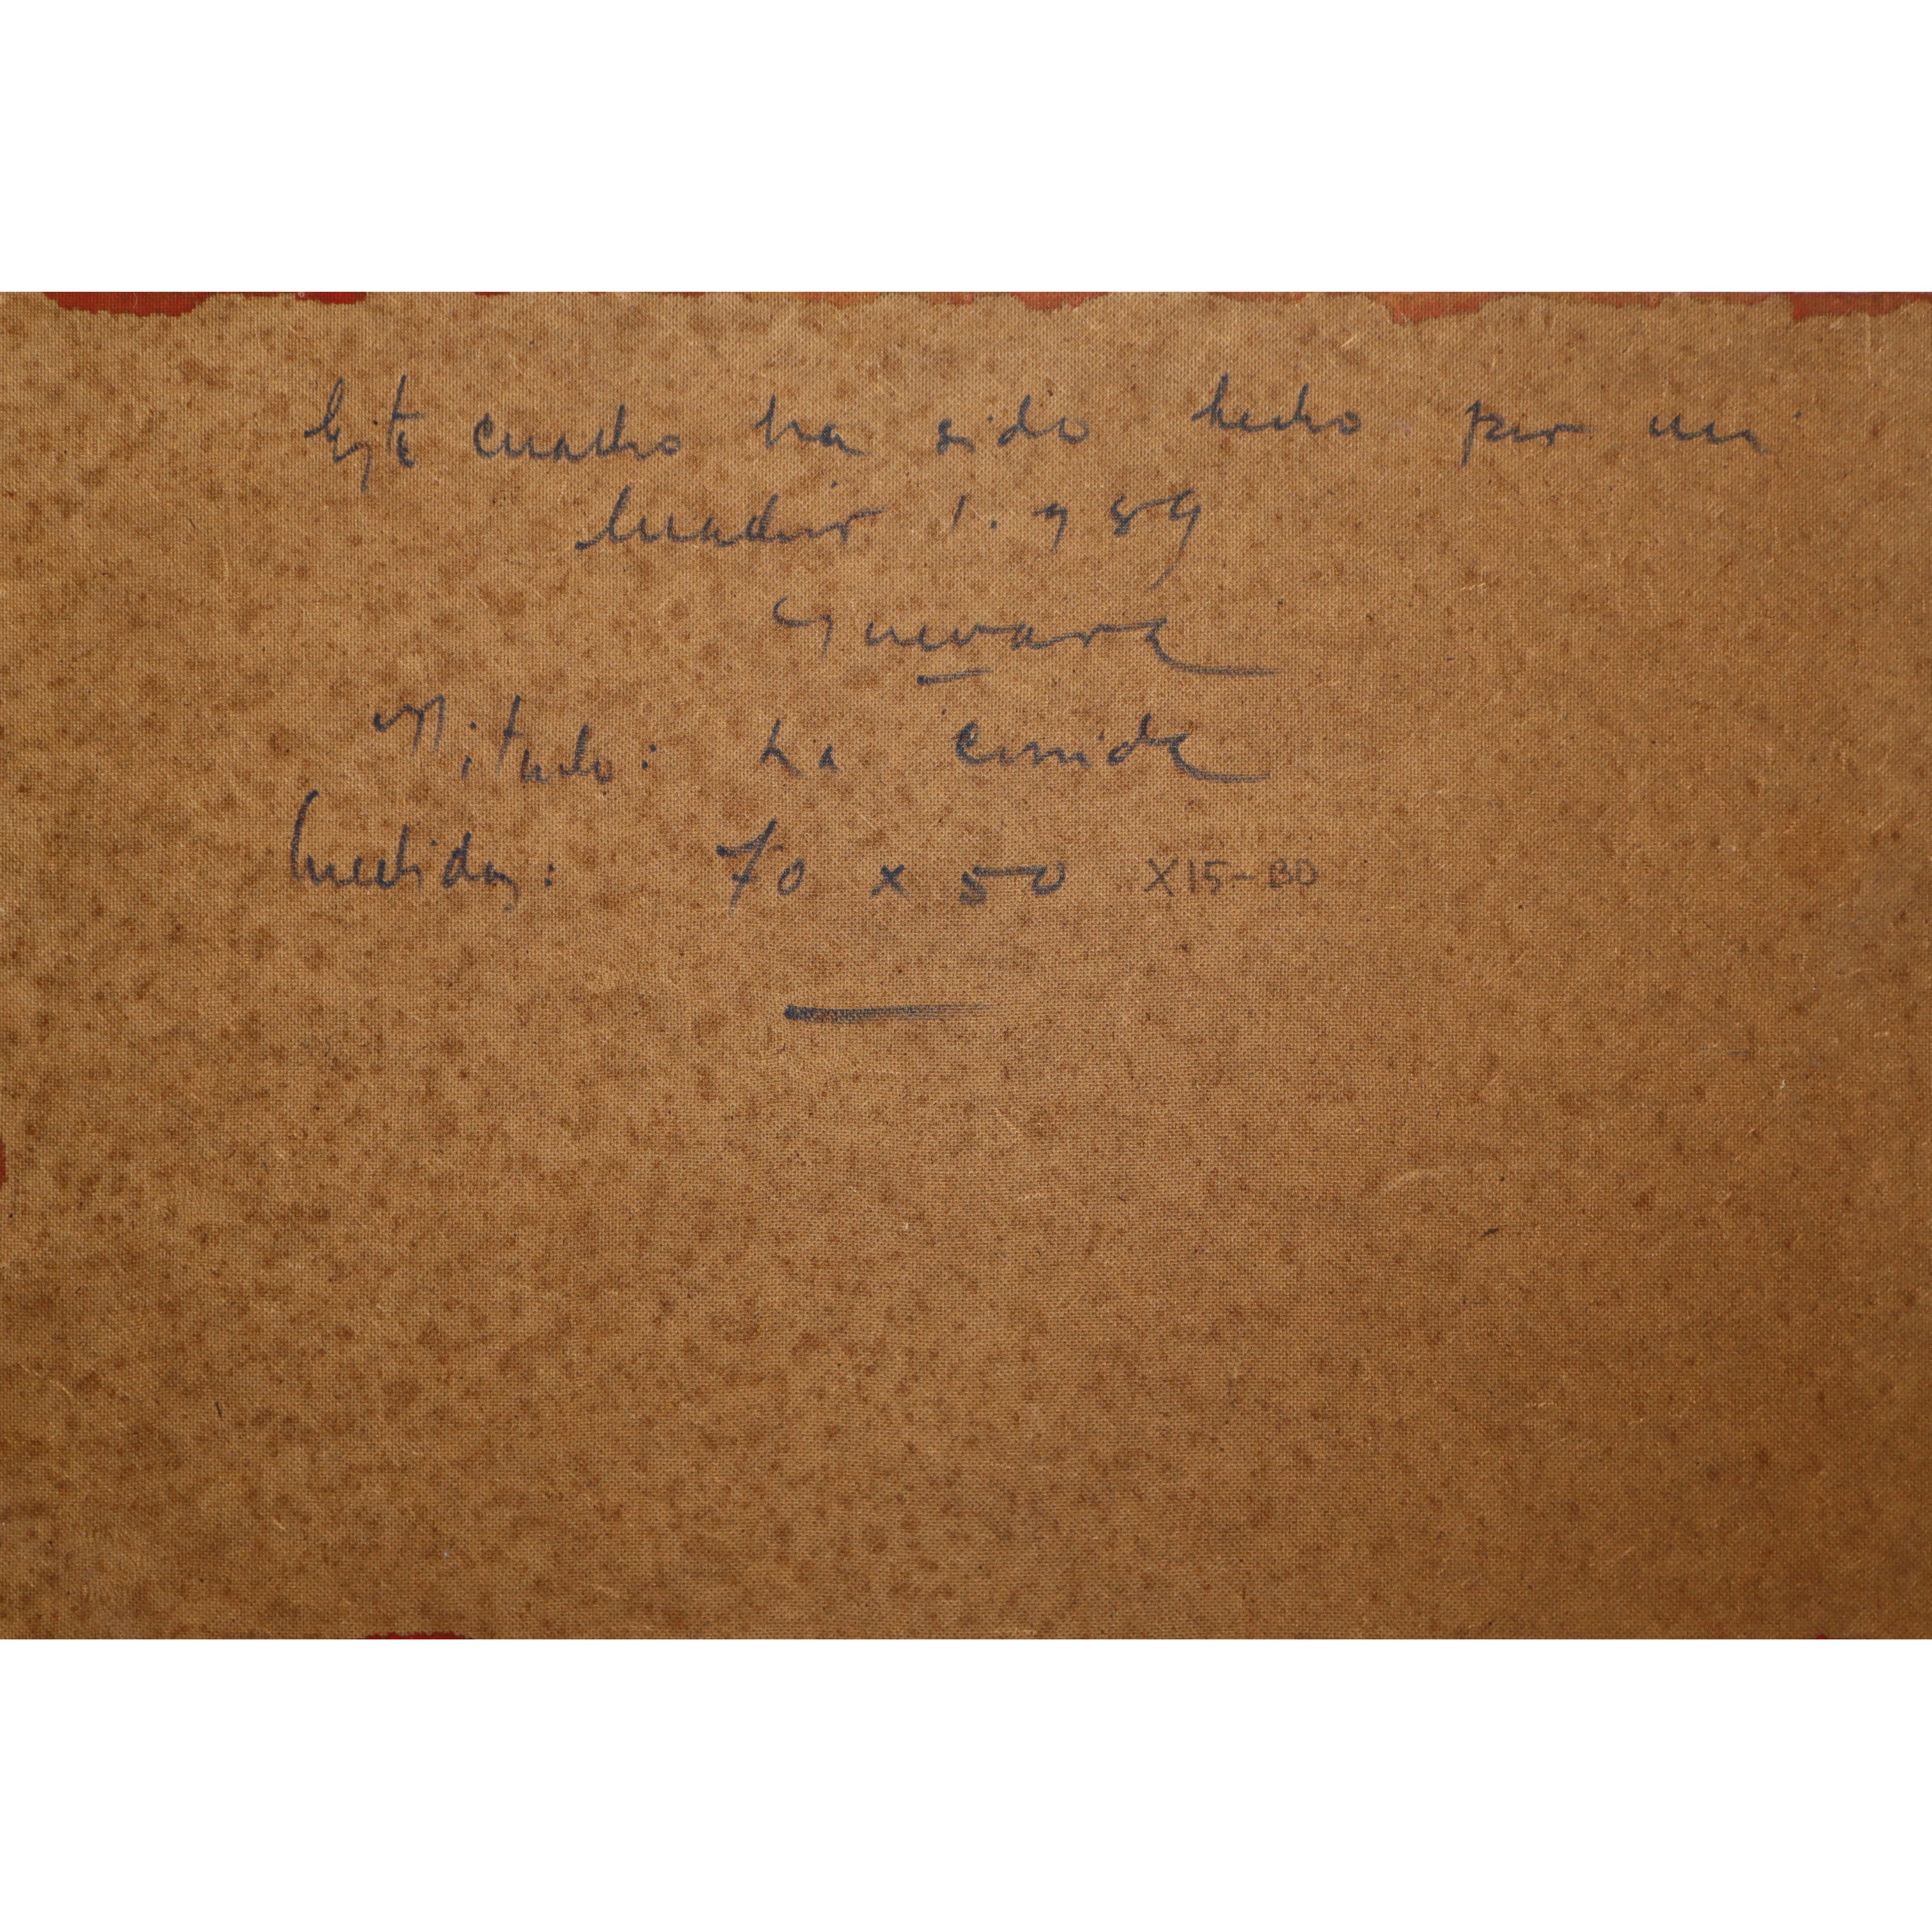 Este cuadro ha sido hecho por mi
Madrid 1.989
Guevara
Titulo: La
Medidas: 70 x 50 X15-BD